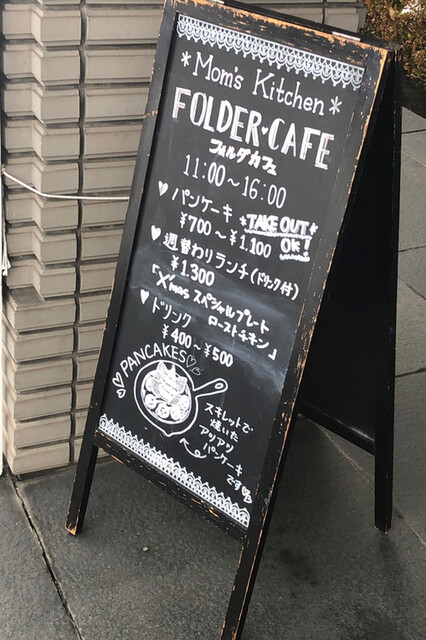 *Mom's Kitchen*
FOLDER♥CAFE
フォルダカフェ
11:00～16:00
♥パンケーキ *TAKE OUT*
¥700～¥1.100 OK!
♥週替わりランチ(ドリンク付)
¥1.300
「X'mas スペシャルプレート
ローストチキン」
♥ドリンク
¥400～¥500
♡PANCAKES♡
スキレットで
焼いた
アツアツ
パンケーキ
です